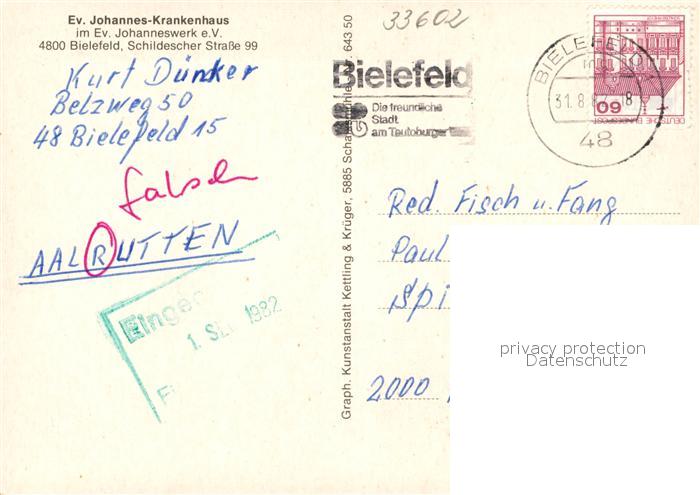 Ev. Johannes-Krankenhaus
im Ev. Johanneswerk e.V.
4800 Bielefeld, Schildescher Straße 99
Kurt Dünker
Belzweg 50
48 Bielefeld 15
falsch
AALRUTTEN
Einge
1. SE 1982
Graph. Kunstanstalt Kettling & Krüger, 5885 Schalksmühle 643 50
33602
Bielefeld
Die freundliche
Stadt
am Teutoburger
BIELEFELD
31.8.8
48
60
DEUTSCHE BUNDESPOST
Red. Fisch u. Fang
Paul
Spi
2000
privacy protection
Datenschutz